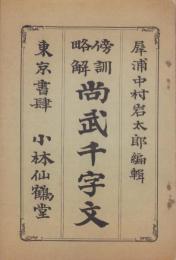 犀浦中村岩太郎編輯
傍訓
略解
尚武千字文
東京書肆 小林仙鶴堂